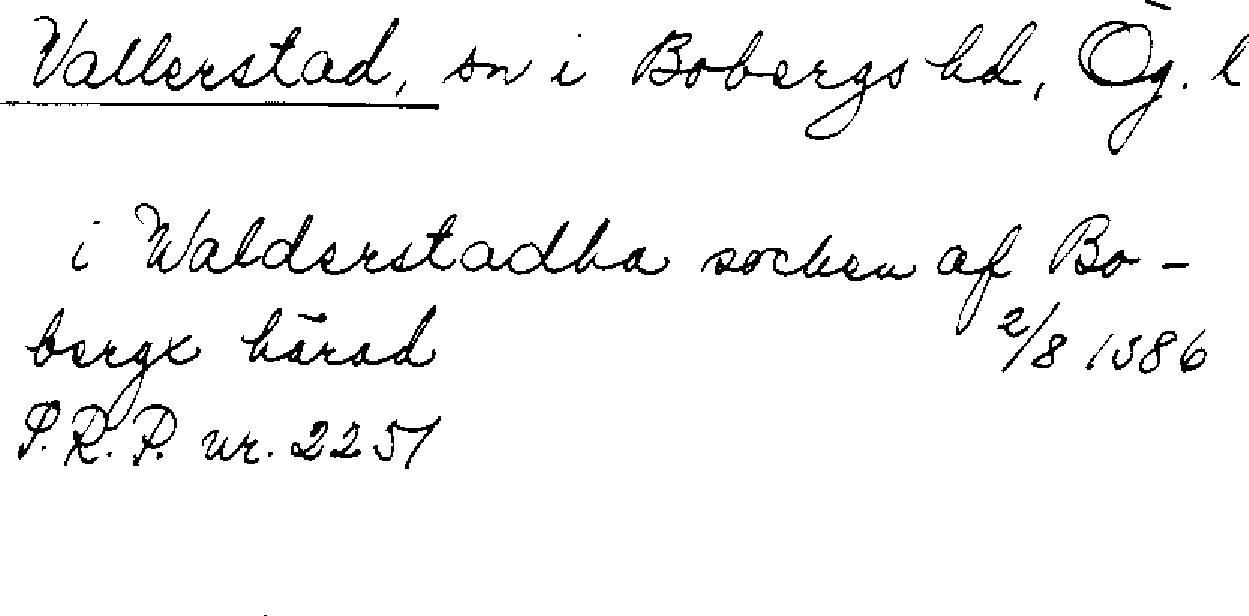 Vallerstad, sn i Bobergs hd, Ög. l
i Walderstadha socken af Bo-
bergx härad 2/8 1386
S.R.P. nr. 2251